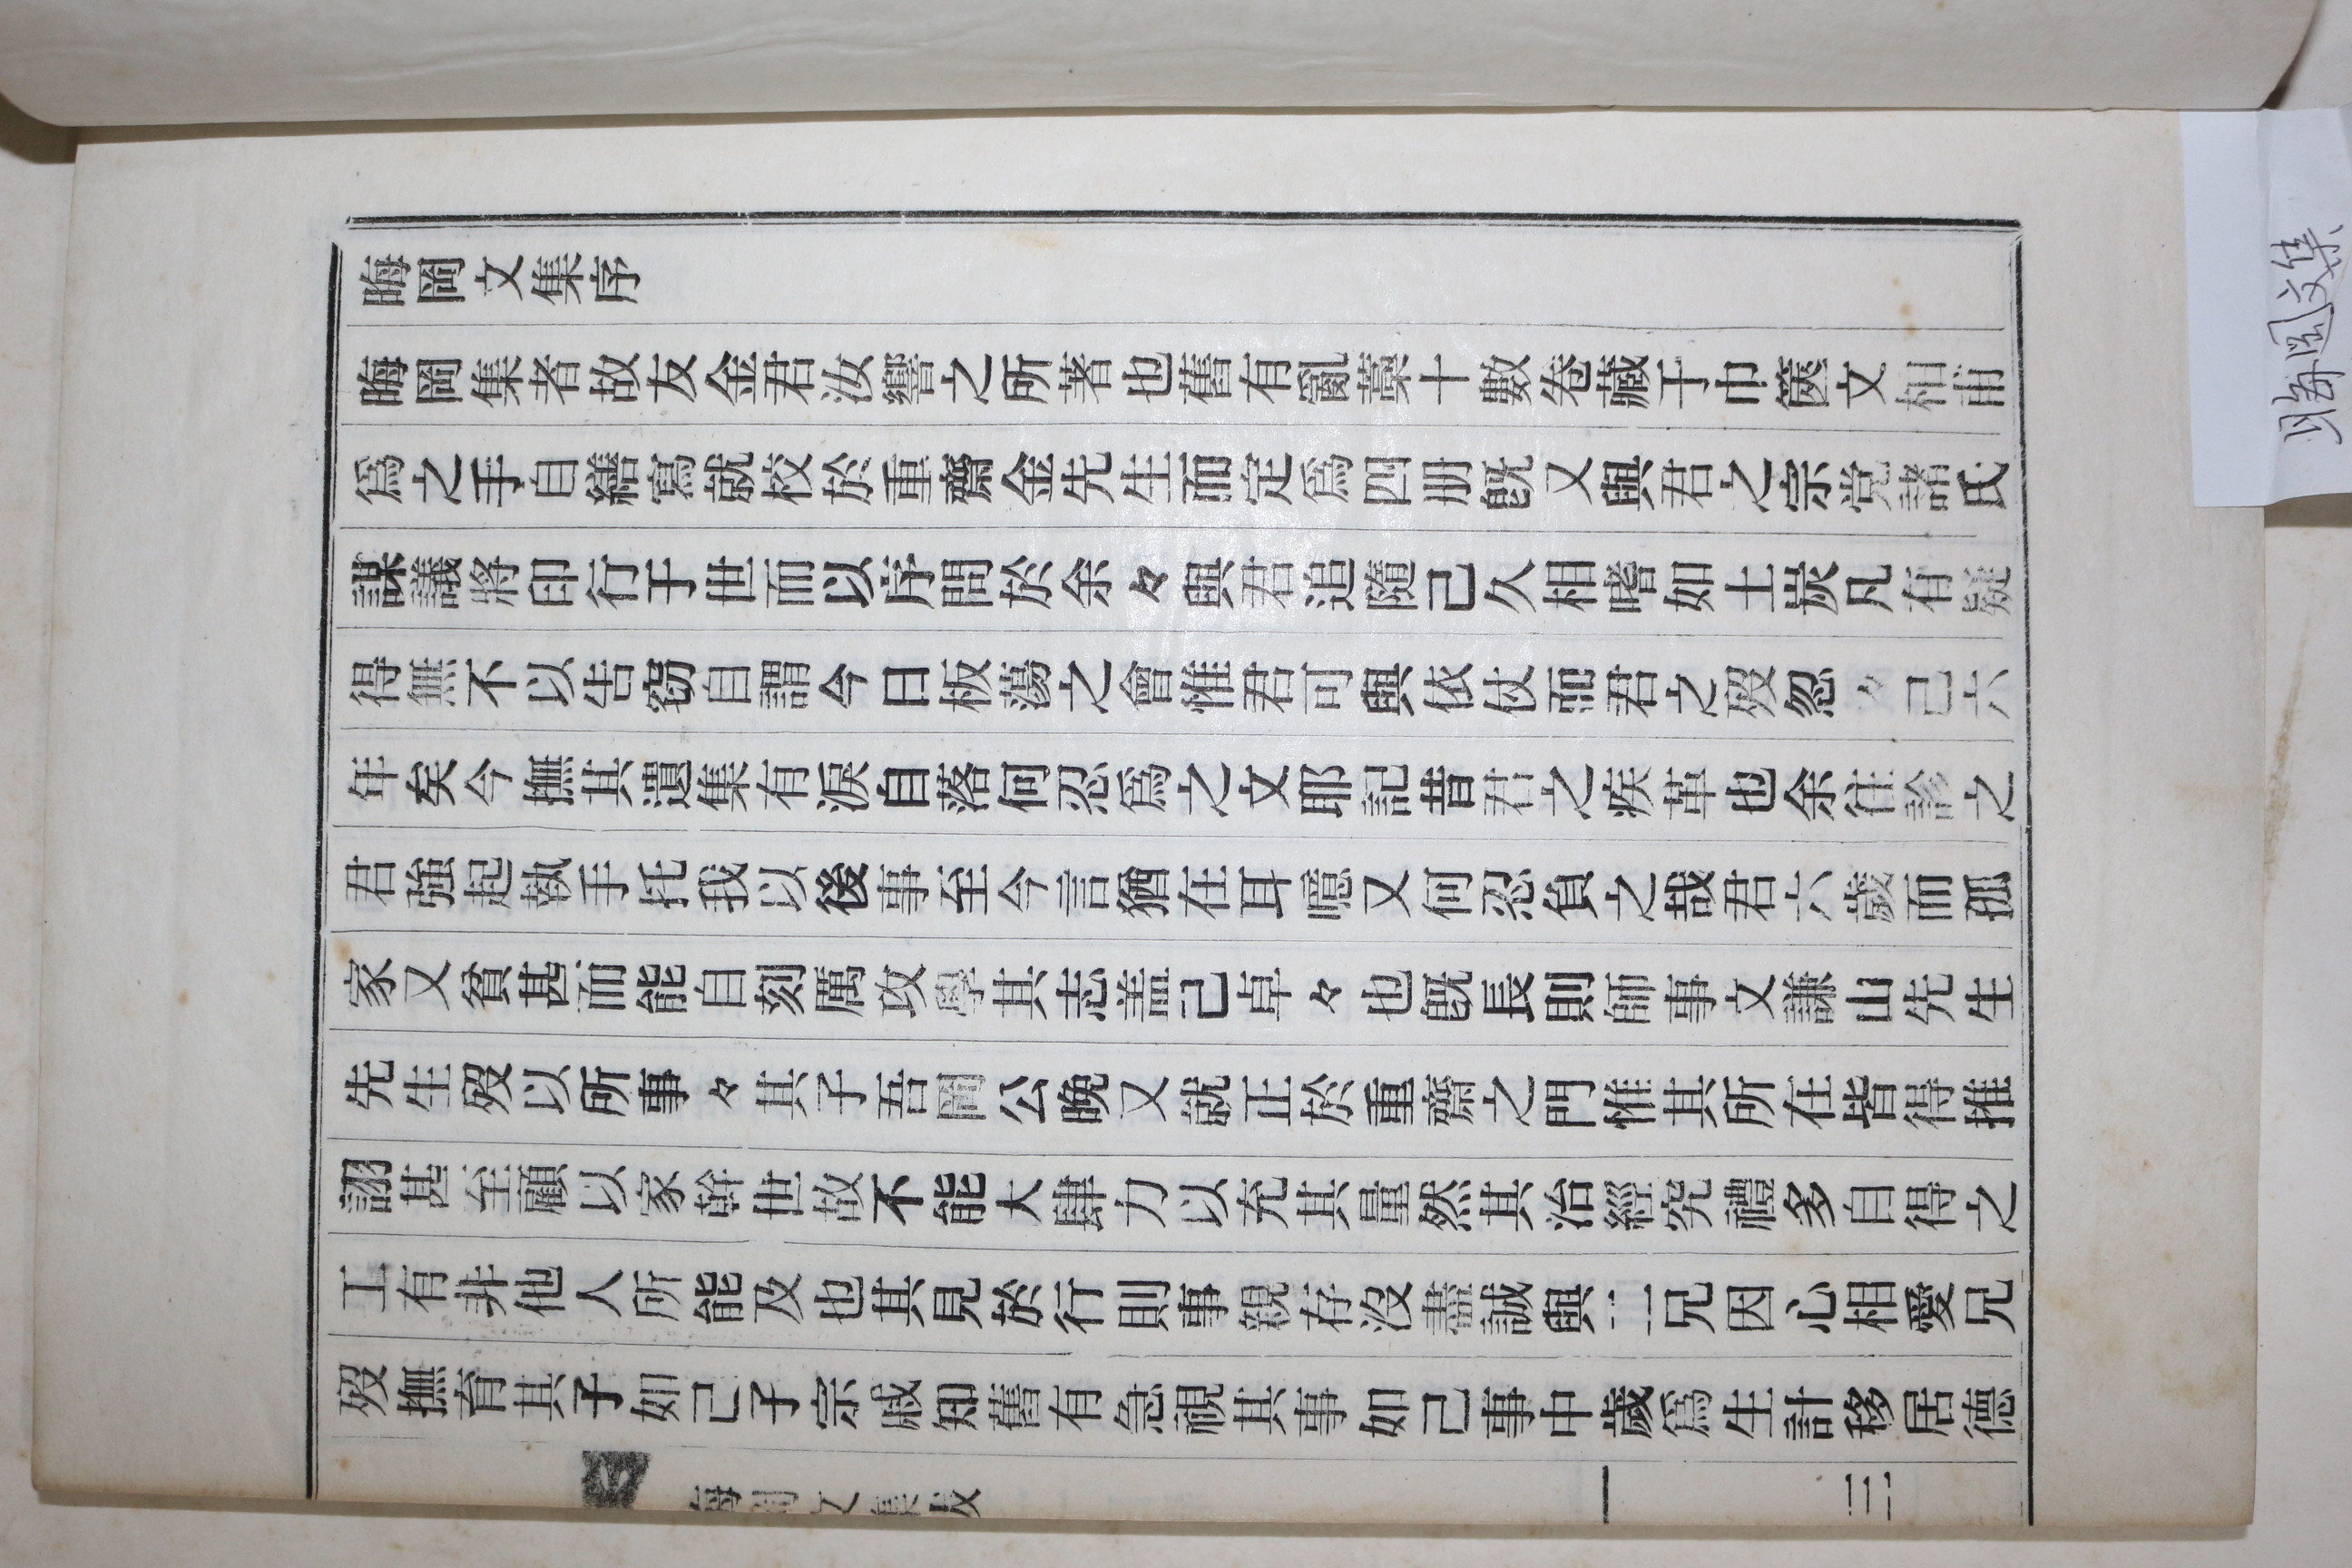 晦岡文集序
晦岡集者故友金君汝響之所著也舊有亂藁十數卷藏于巾篋文相甫
爲之手自繕寫就校於重齋金先生而定爲四册旣又與君之宗党諸氏
謀議將印行于世而以序問於余々與君追隨己久相嗜如土炭凡有疑
得無不以告窃自謂今日板蕩之會惟君可與依仗而君之歿忽々己六
年矣今撫其遺集有淚自落何忍爲之文耶記昔君之疾革也余往診之
君強起執手托我以後事至今言猶在耳噫又何忍負之哉君六歲而孤
家又貧甚而能自刻厲攻學其志盖己卓々也旣長則師事文謙山先生
先生歿以所事々其子吾岡公晩又就正於重齋之門惟其所在皆得推
詡甚至顧以家幹世故不能大肆力以充其量然其治經究禮多自得之
工有非他人所能及也其見於行則事親存沒盡誠與二兄因心相愛兄
歿撫育其子如己子宗戚知舊有急視其事如己事中歲爲生計移居德
晦岡文集
三
晦岡文集